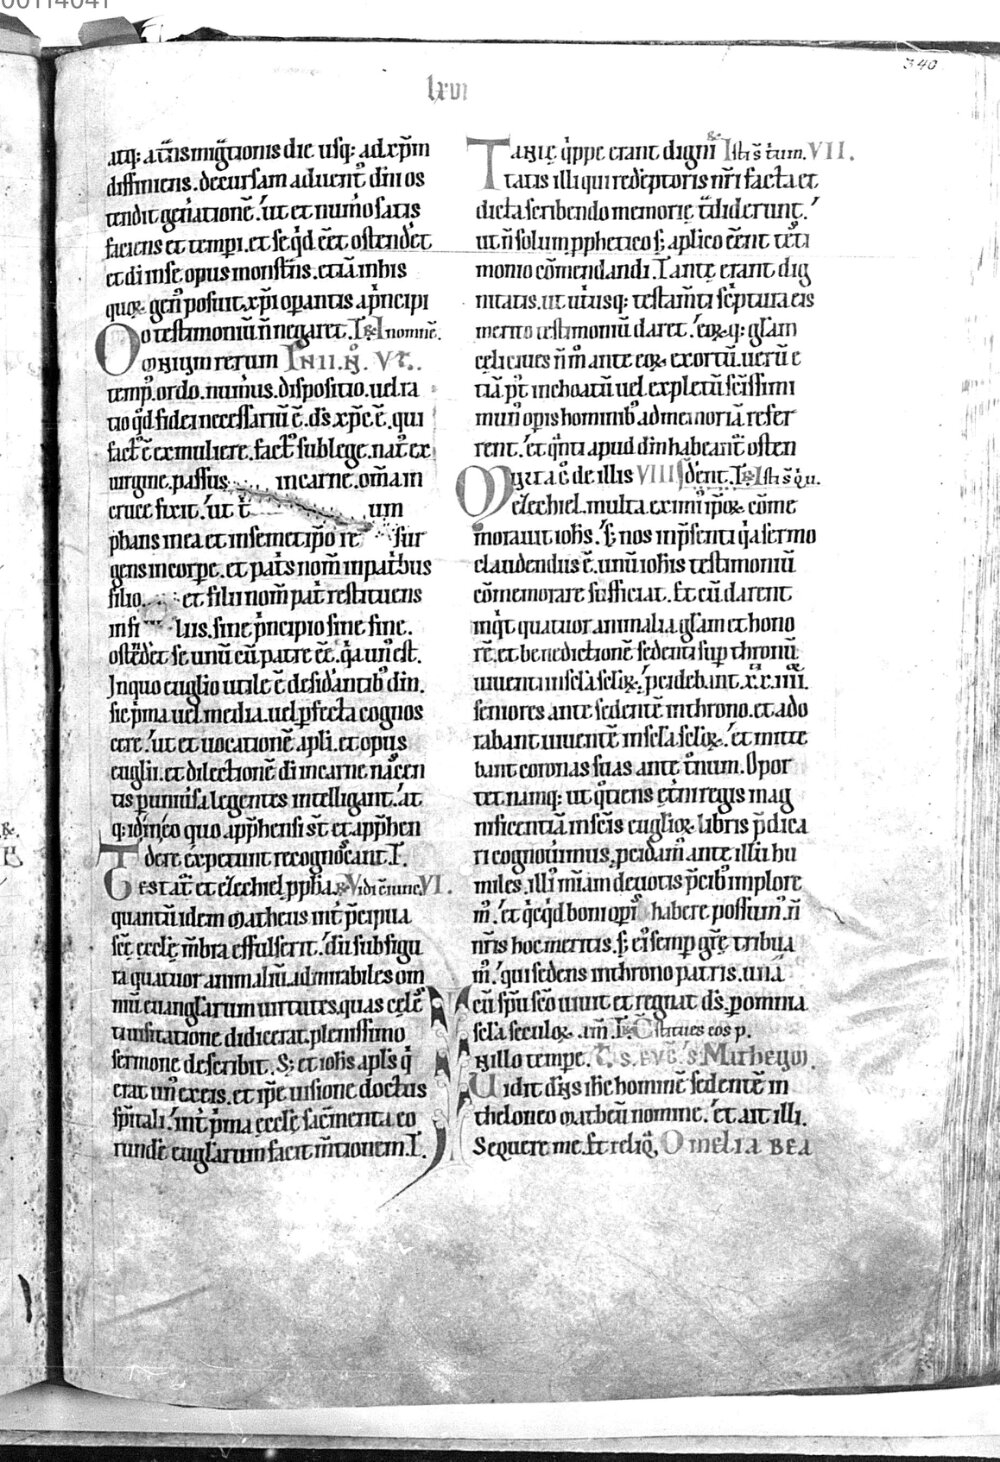 00114041
340
lxvi
atq; a tn̄smig̃tionis die usq; ad xp̄m
diffiniens. decursam aduent᷒ dn̄i os
tendit gen̄atione̅. ut et num̅o satis
faciens et tempi. et se q̇d e̅et ostendēt
et di in se opus monstn̄s. etiā in his
quoꝝ gen᷒ posuit. xp̄i opantis a p̄ncipi
o testimoniū n̄ negaret. R̷ In nomine̅.
Omnium rerum
temp᷒. ordo. num̅us. dispositio. uel ra
tio q̇d fidei necessariū ē. ds̄ xp̄c ē. qui
fact᷒ ē ex muliere. fact᷒ sub lege. nat᷒ ex
uirgine. passus in carne. om̄a in
cruce fixit. ut t um
phans mea et in semetip̄o re sur
gens in corpe. et pat̄s nom̄ in pat̄bus
filio. et filii nom̄ pat̄ restituens
in fi liis. sine p̄ncipio sine fine.
ostēdēt se unū cū patre ē̄e. q̇a un᷒ est.
In quo euglio utile ē desidantib᷒ dm̄.
sic p̄ma uel media. uel pfecta cognos
cere. ut et uocatione̅ apli. et opus
euglii. et dilectione̅ di in carne nasc̄en
tis p uniūsa legentes intelligant. at
q; id in eo quo apphensi st̄ et apphen
dere expetunt recognoscant. T.
Gestat᷒ et ezechiel ppha R̷ Vidi c̄iunc̄. VI.
quantū idem matheus int̄ p̄cipua
sc̄e eccl̄ę m̄bra effulserit. dū sub figu
ra quatuor animaliū. admirabiles om
niū euangl̄arum uirtutes. quas cel̄e
ti uisitatione didicerat. plenissimo
sermone describit. S; et ioh̄is apl̄s q̇
erat un᷒ ex eis. et ip̄e uisione doctus
sp̄itali. int̄ p̄ma eccl̄ę sac̄menta eo
runde̅ eugl̄arum facit m̄tionem. T.
Tantę q̇ppe erant digni R̷ Isti s̄t VII.
tatis illi qui redēptoris nr̄i facta et
dicta scribendo memorię t̄diderunt.
ut n̄ solum pphetico s; aplico e̅ent testi
monio cōmendandi. Tantę erant dig
nitatis. ut utiusq; testam̄ti sc̄ptura eis
merito testimoniū daret. eoꝝ q; gl̄am
celi ciues n̄m̄ ante eoꝝ exortū. uerū e
tiā p᷒t inchoatū uel expletū sc̄issimi
mun᷒ opis hominib᷒ ad memoriā refer
rent. et q̄nti apud dm̄ habeant᷒ osten
derent. R̷ Isti s̄ q̇.
Multa ē de illis VIII
ezechiel. multa ex inūi ip̄oꝝ cōme
morauit ioh̄is. s; nos in p̄senti q̇a sermo
claudendus ē. unū ioh̄is testimoniū
cōmemorare sufficiat. Et cū darent
inq̇t quatuor animalia gl̄am et hono
rē. et benedictionē sedenti sup thronū
uiuenti in sc̄la sc̄loꝝ. pcidebant. xx.iiii.
seniores ante sedentē in throno. et ado
rabant uiuentē in sc̄la sc̄loꝝ. et mitte
bant coronas suas ante t̄num. Opor
tet namq; ut q̇tiens ęt̄ni regis mag
nificentiā in sc̄is euglioꝝ libris p̄dica
ri cognouimus. pcidam᷒ ante illū hu
miles. illi᷒ m̄iam deuotis p̄cib᷒ implore
m᷒. et q̇cq̇d boni opis habere possum᷒. n̄
nr̄is hoc meritis. s; ei᷒ semp gr̄ę tribua
m᷒. qui sedens in throno patris. unā
cū sp̄u sc̄o uiuit et regnat ds̄. p omnia
sc̄la seculoꝝ. am̄. R̷ Cōstitues eos p.
In illo tempe. S. EVG̅. S. Matheum.
Uidit dn̄s ih̄c hominē sedentē in
theloneo matheū nomine. et ait illi.
Sequere me. Et reliq̄. Omelia bea